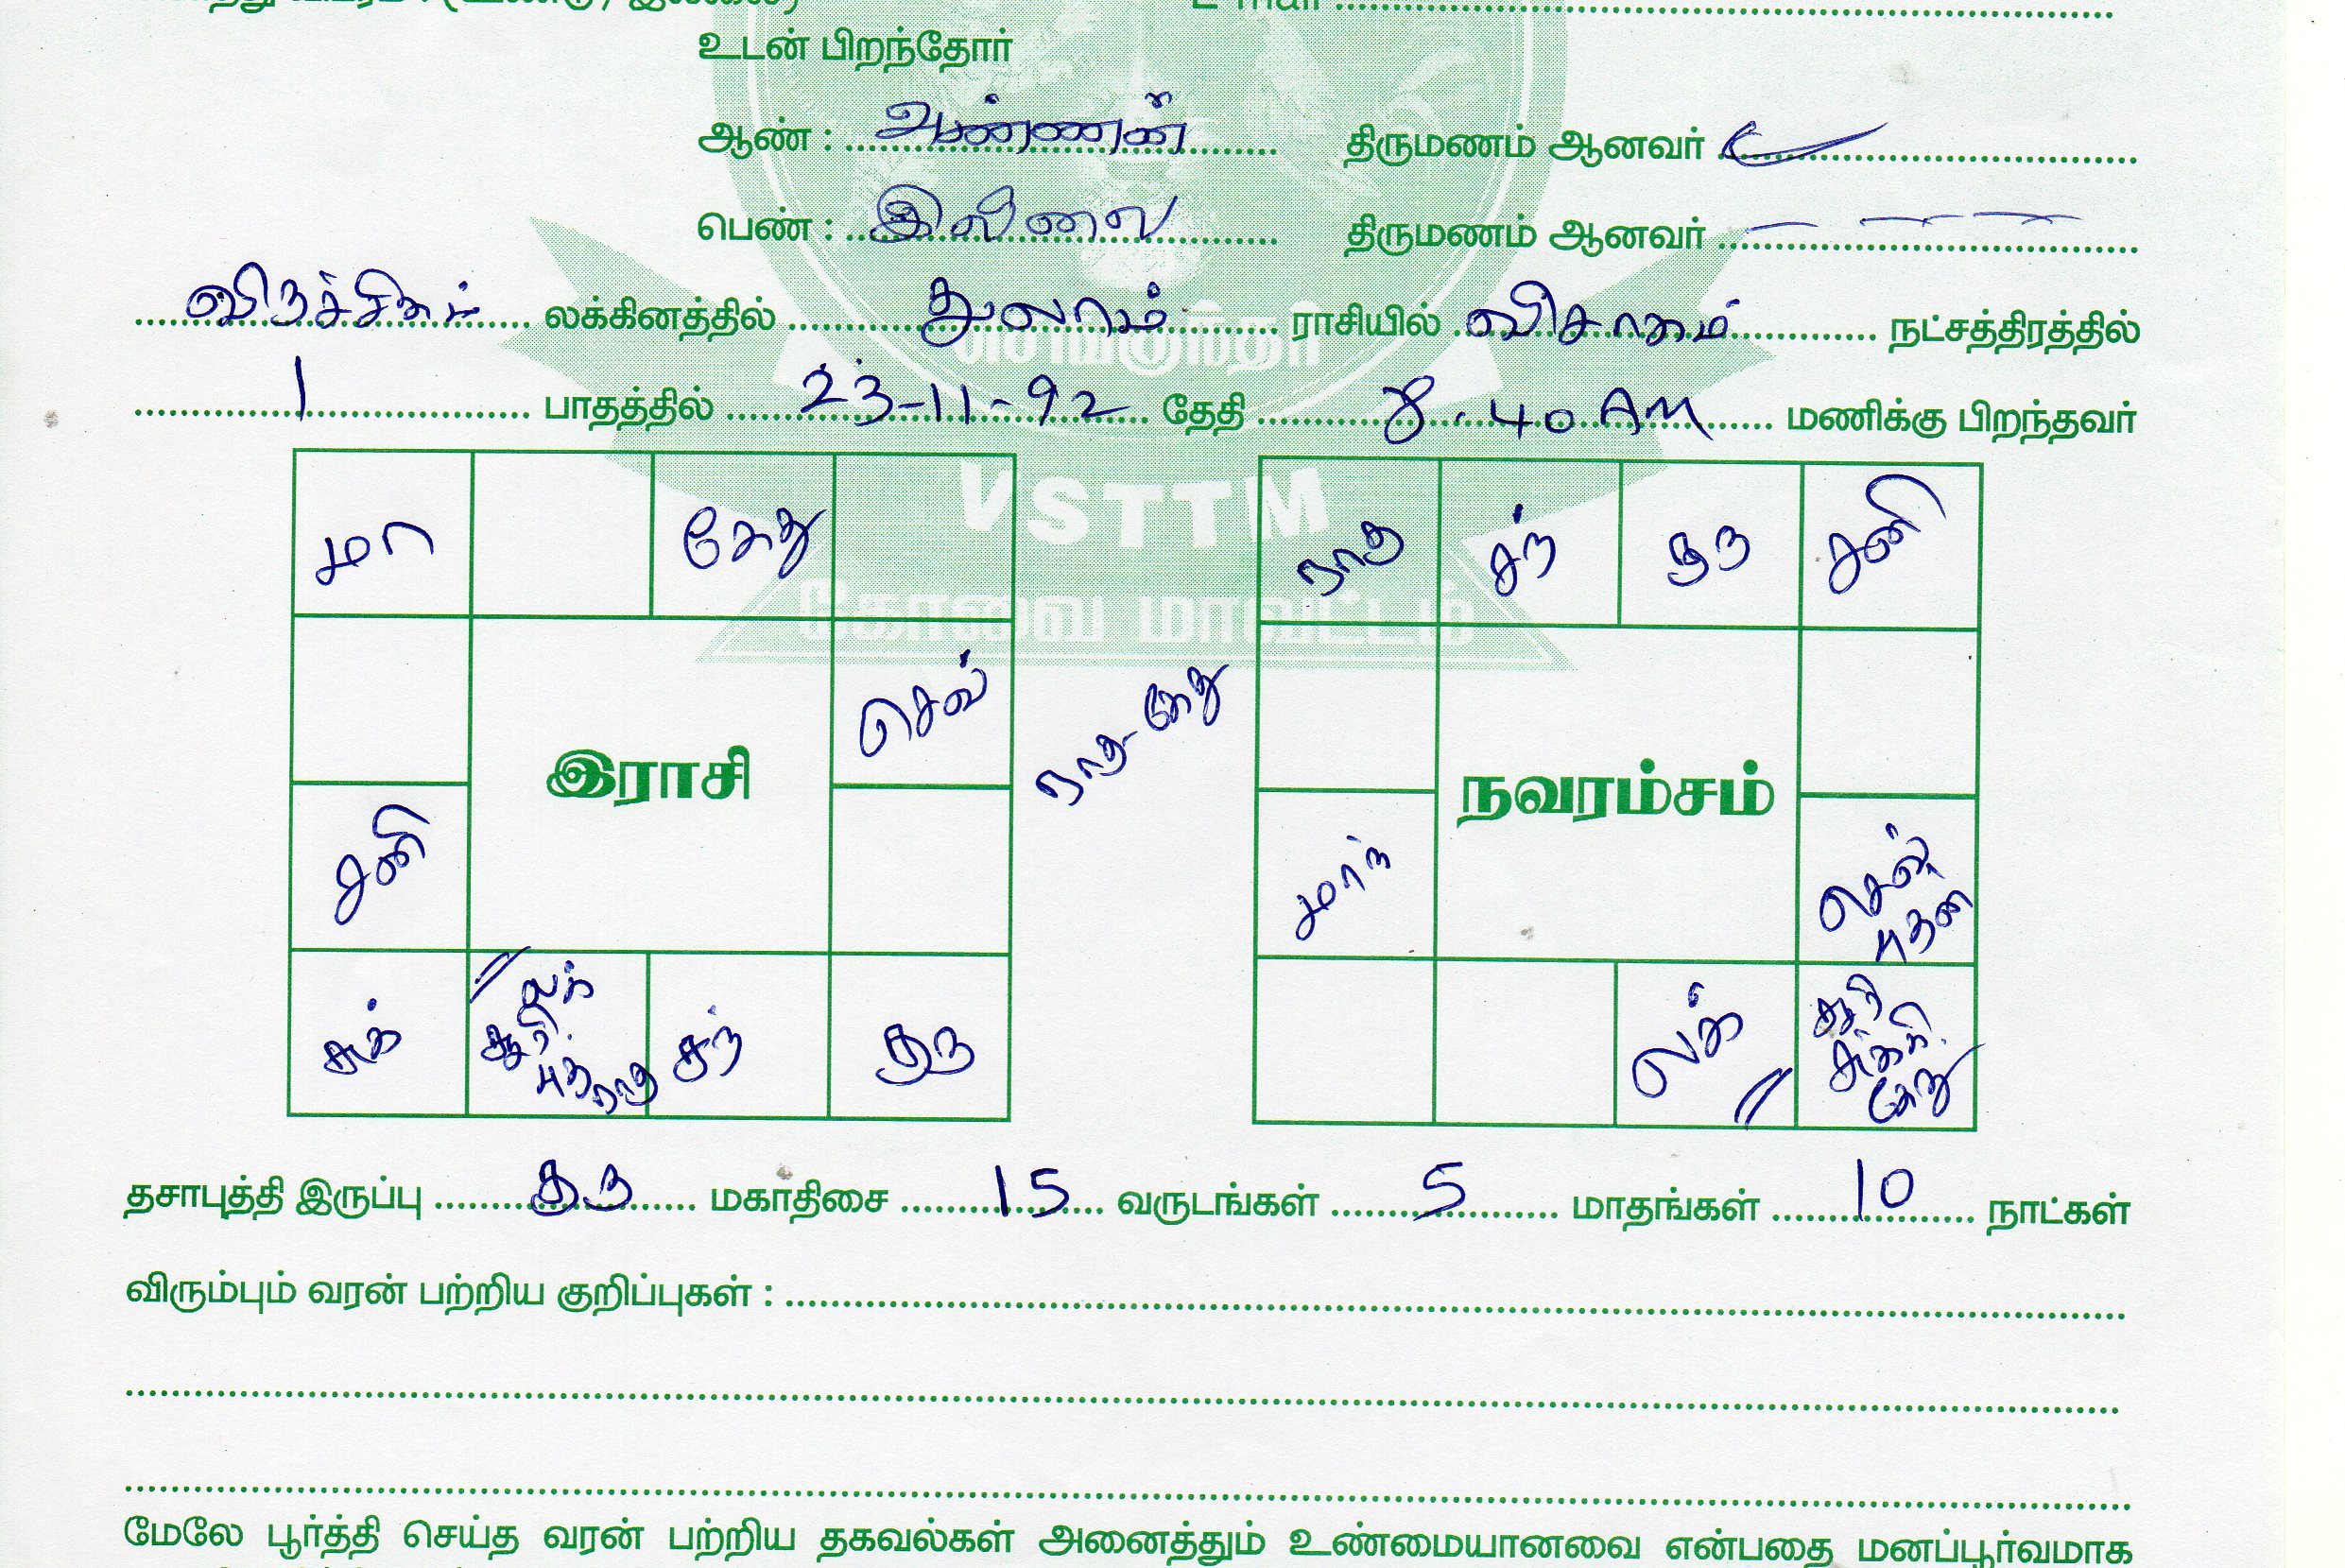 E-mail
உடன் பிறந்தோர்
ஆண் : அண்ணன் திருமணம் ஆனவர்
பெண் : இல்லை திருமணம் ஆனவர் - - -
விருச்சிகம் லக்கினத்தில் துலாம் ராசியில் விசாகம் நட்சத்திரத்தில்
1 பாதத்தில் 23-11-92 தேதி 8.40 AM மணிக்கு பிறந்தவர்
செங்குந்தர்
VSTTM
கோவை மாவட்டம்
மா கேது
ராகு சந் குரு சனி
செவ்
ராகு-கேது
இராசி
நவரம்சம்
சனி
மாந்
செவ் புதன்
சுக் லக் சூரி புத ராகு சந் குரு
லக் சூரி சுக்கி கேது
தசாபுத்தி இருப்பு குரு மகாதிசை 15 வருடங்கள் 5 மாதங்கள் 10 நாட்கள்
விரும்பும் வரன் பற்றிய குறிப்புகள் :
மேலே பூர்த்தி செய்த வரன் பற்றிய தகவல்கள் அனைத்தும் உண்மையானவை என்பதை மனப்பூர்வமாக